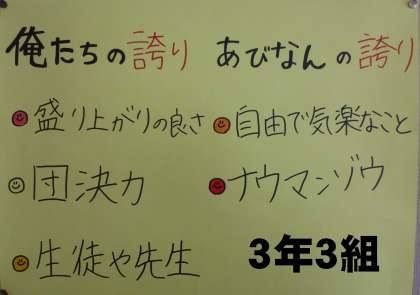 俺たちの誇り
盛り上がりの良さ
団決力
生徒や先生
あびなんの誇り
自由で気楽なこと
ナウマンゾウ
3年3組